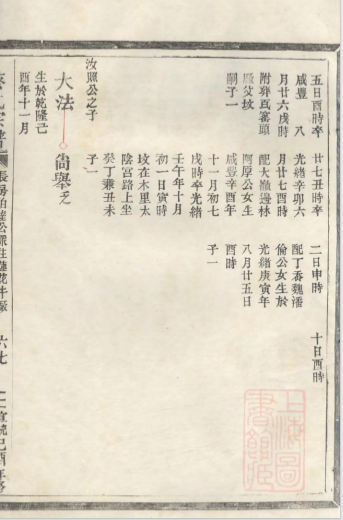 五日酉時卒
咸豐 八
月廿六戌時
附葬爲窩頭
嚴父坟
嗣子一
廿七丑時卒
光緒辛卯六
月廿七酉時
配大巔邊林
阿厚公女生
咸豐辛酉年
十一月初七
戌時卒光緒
壬午年十月
初一日寅時
坟在木里太
陰宮路上坐
癸丁兼丑未
子一
二日申時
配丁香魏潘
倫公女生於
光緒庚寅年
八月廿五日
酉時
子一
十日酉時
汝照公之子
大法
尚舉
生於乾隆己
酉年十一月
長房
六七
宣統己酉年
上海圖書館藏